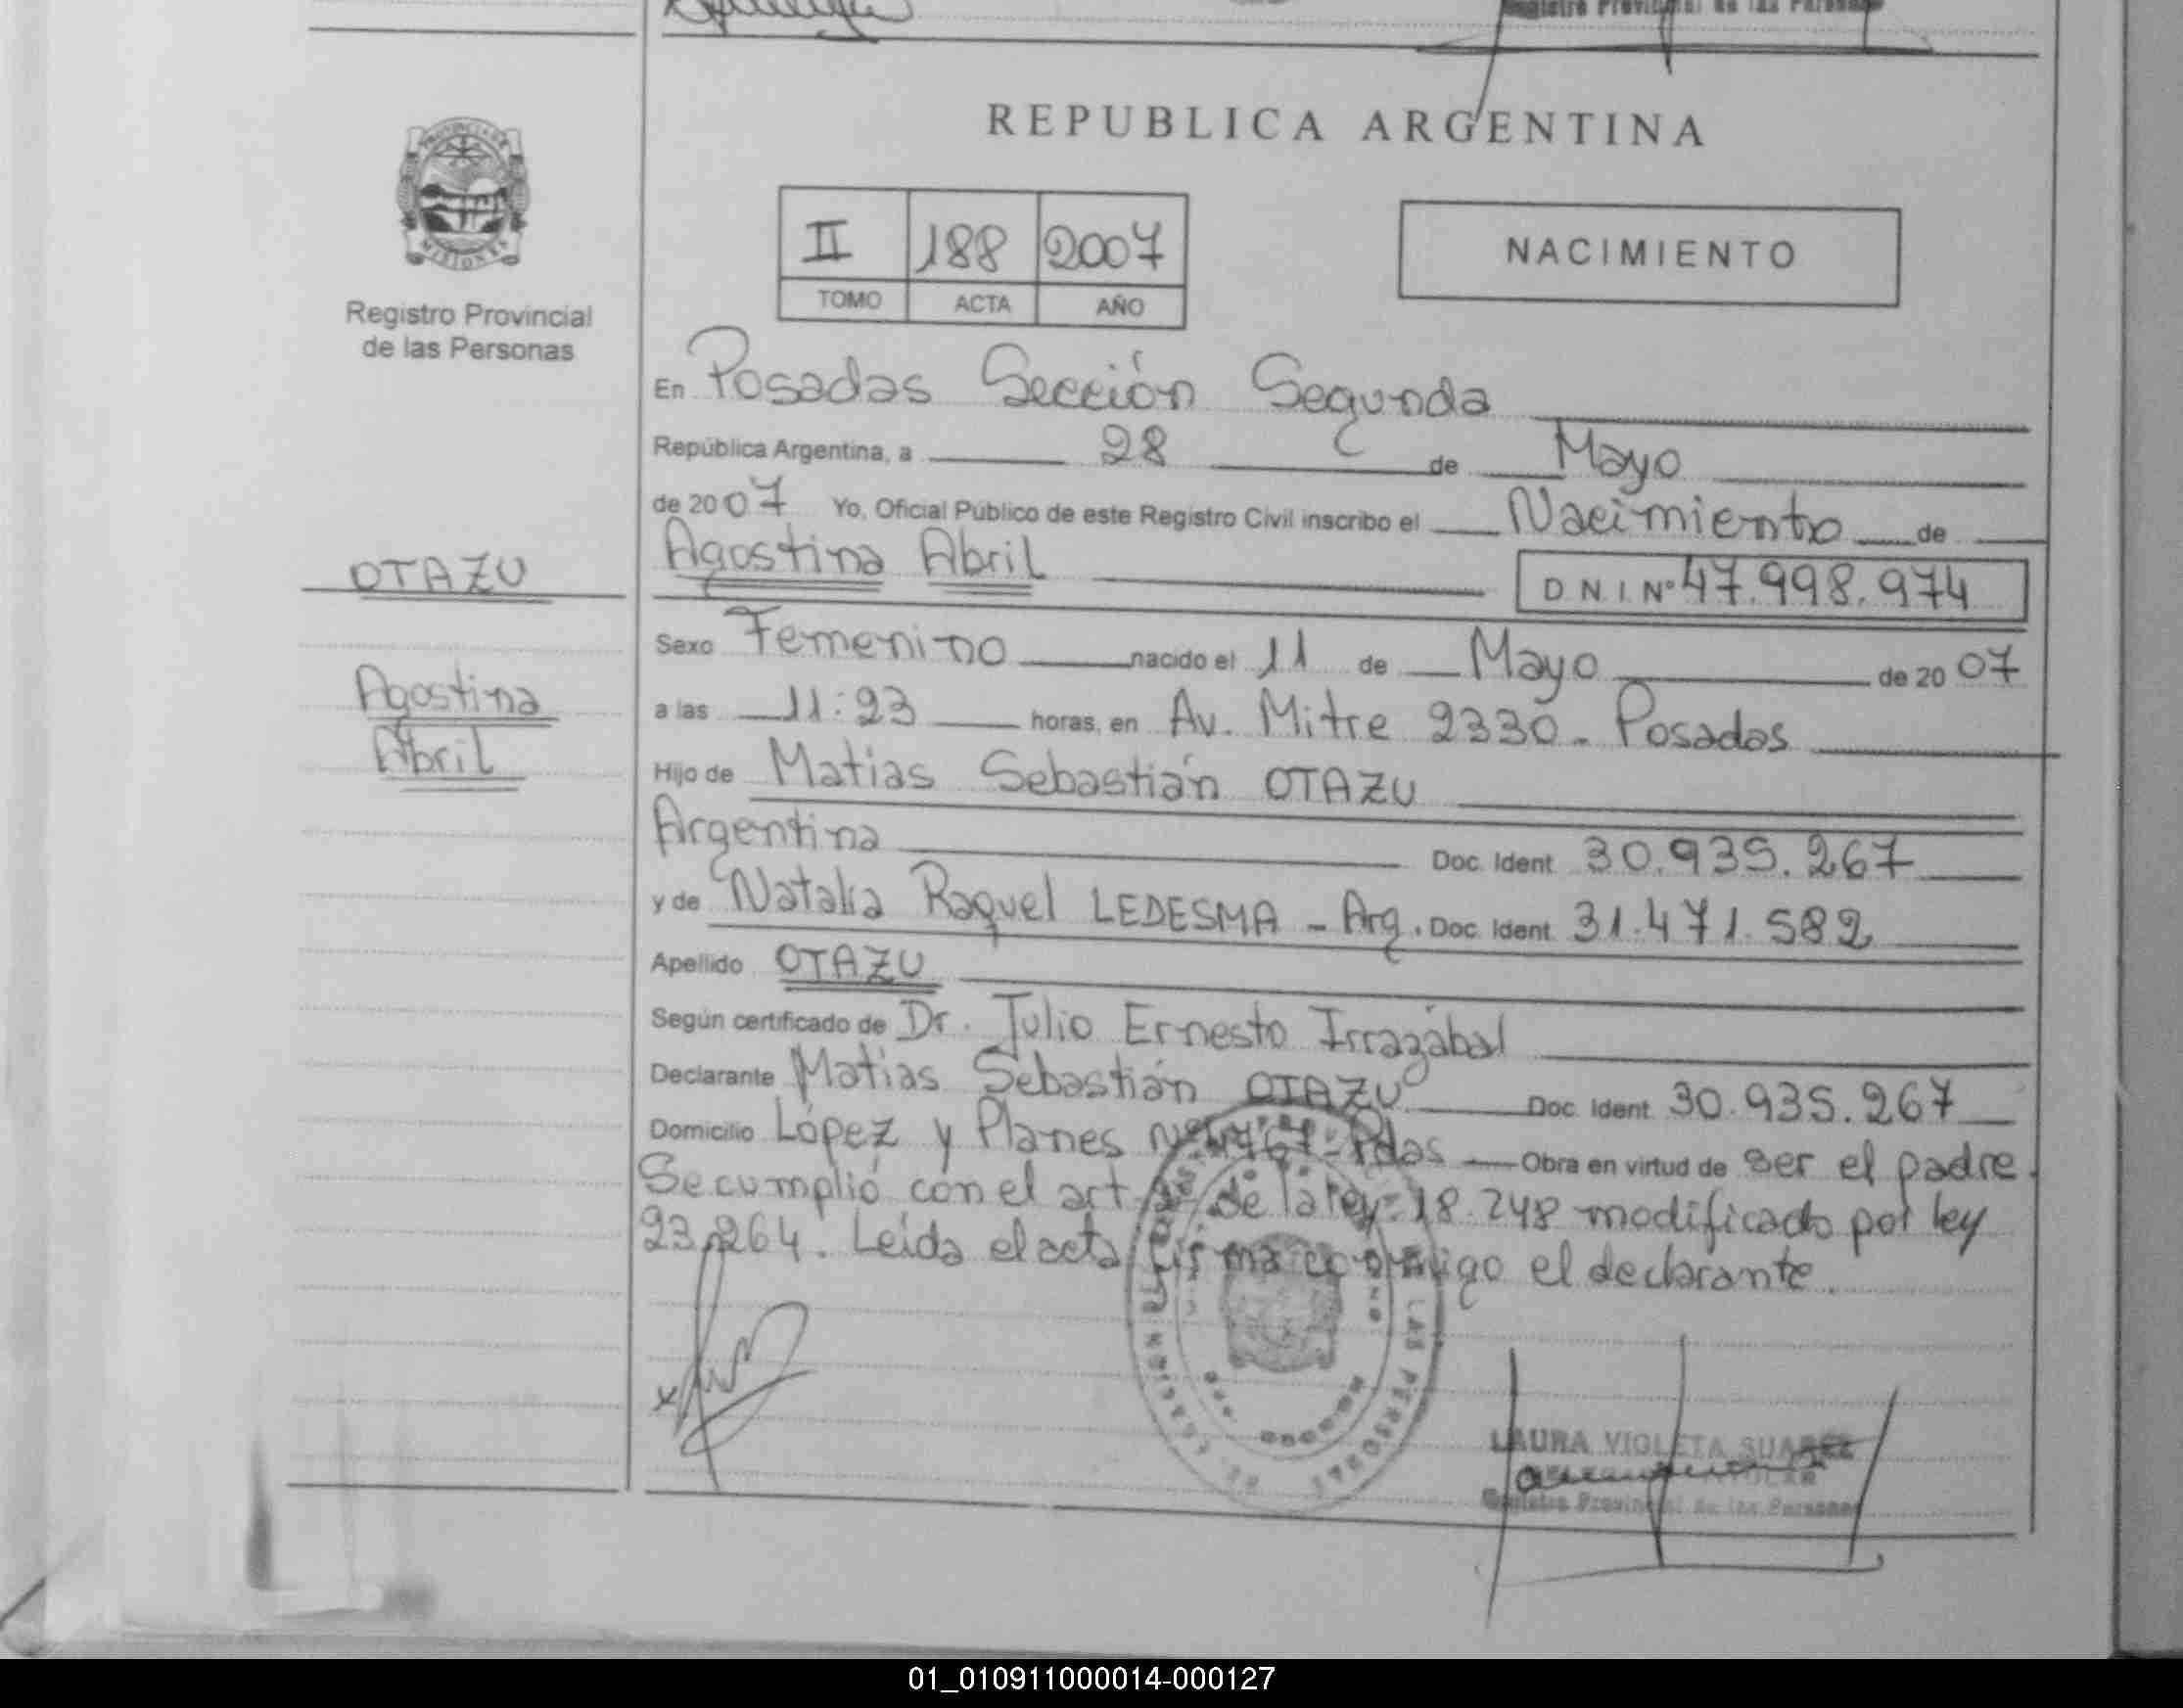 REPUBLICA ARGENTINA
PROVINCIA DE
MISIONES
Registro Provincial
de las Personas
II 188 2007
TOMO ACTA AÑO
NACIMIENTO
En Posadas Sección Segunda
República Argentina, a 28 de Mayo
de 2007 Yo, Oficial Público de este Registro Civil inscribo el Nacimiento de
OTAZU
Agostina Abril D.N.I. Nº 47.998.974
Sexo Femenino nacido el 11 de Mayo de 2007
Agostina
Abril
a las 11:23 horas, en Av. Mitre 2330 - Posadas
Hijo de Matias Sebastián OTAZU
Argentina Doc. Ident. 30.935.267
y de Natalia Raquel LEDESMA - Arg. Doc. Ident. 31.471.582
Apellido OTAZU
Según certificado de Dr. Julio Ernesto Irrazábal
Declarante Matias Sebastián OTAZU Doc. Ident. 30.935.267
Domicilio López y Planes Pdas Obra en virtud de ser el padre.
Se cumplió con el art. de la ley 18.248 modificado por ley
23.264. Leida el acta firma conmigo el declarante.
LAS PERSONAS
LAURA VIOLETA SUAREZ
Registro Provincial de las Personas
01_010911000014-000127